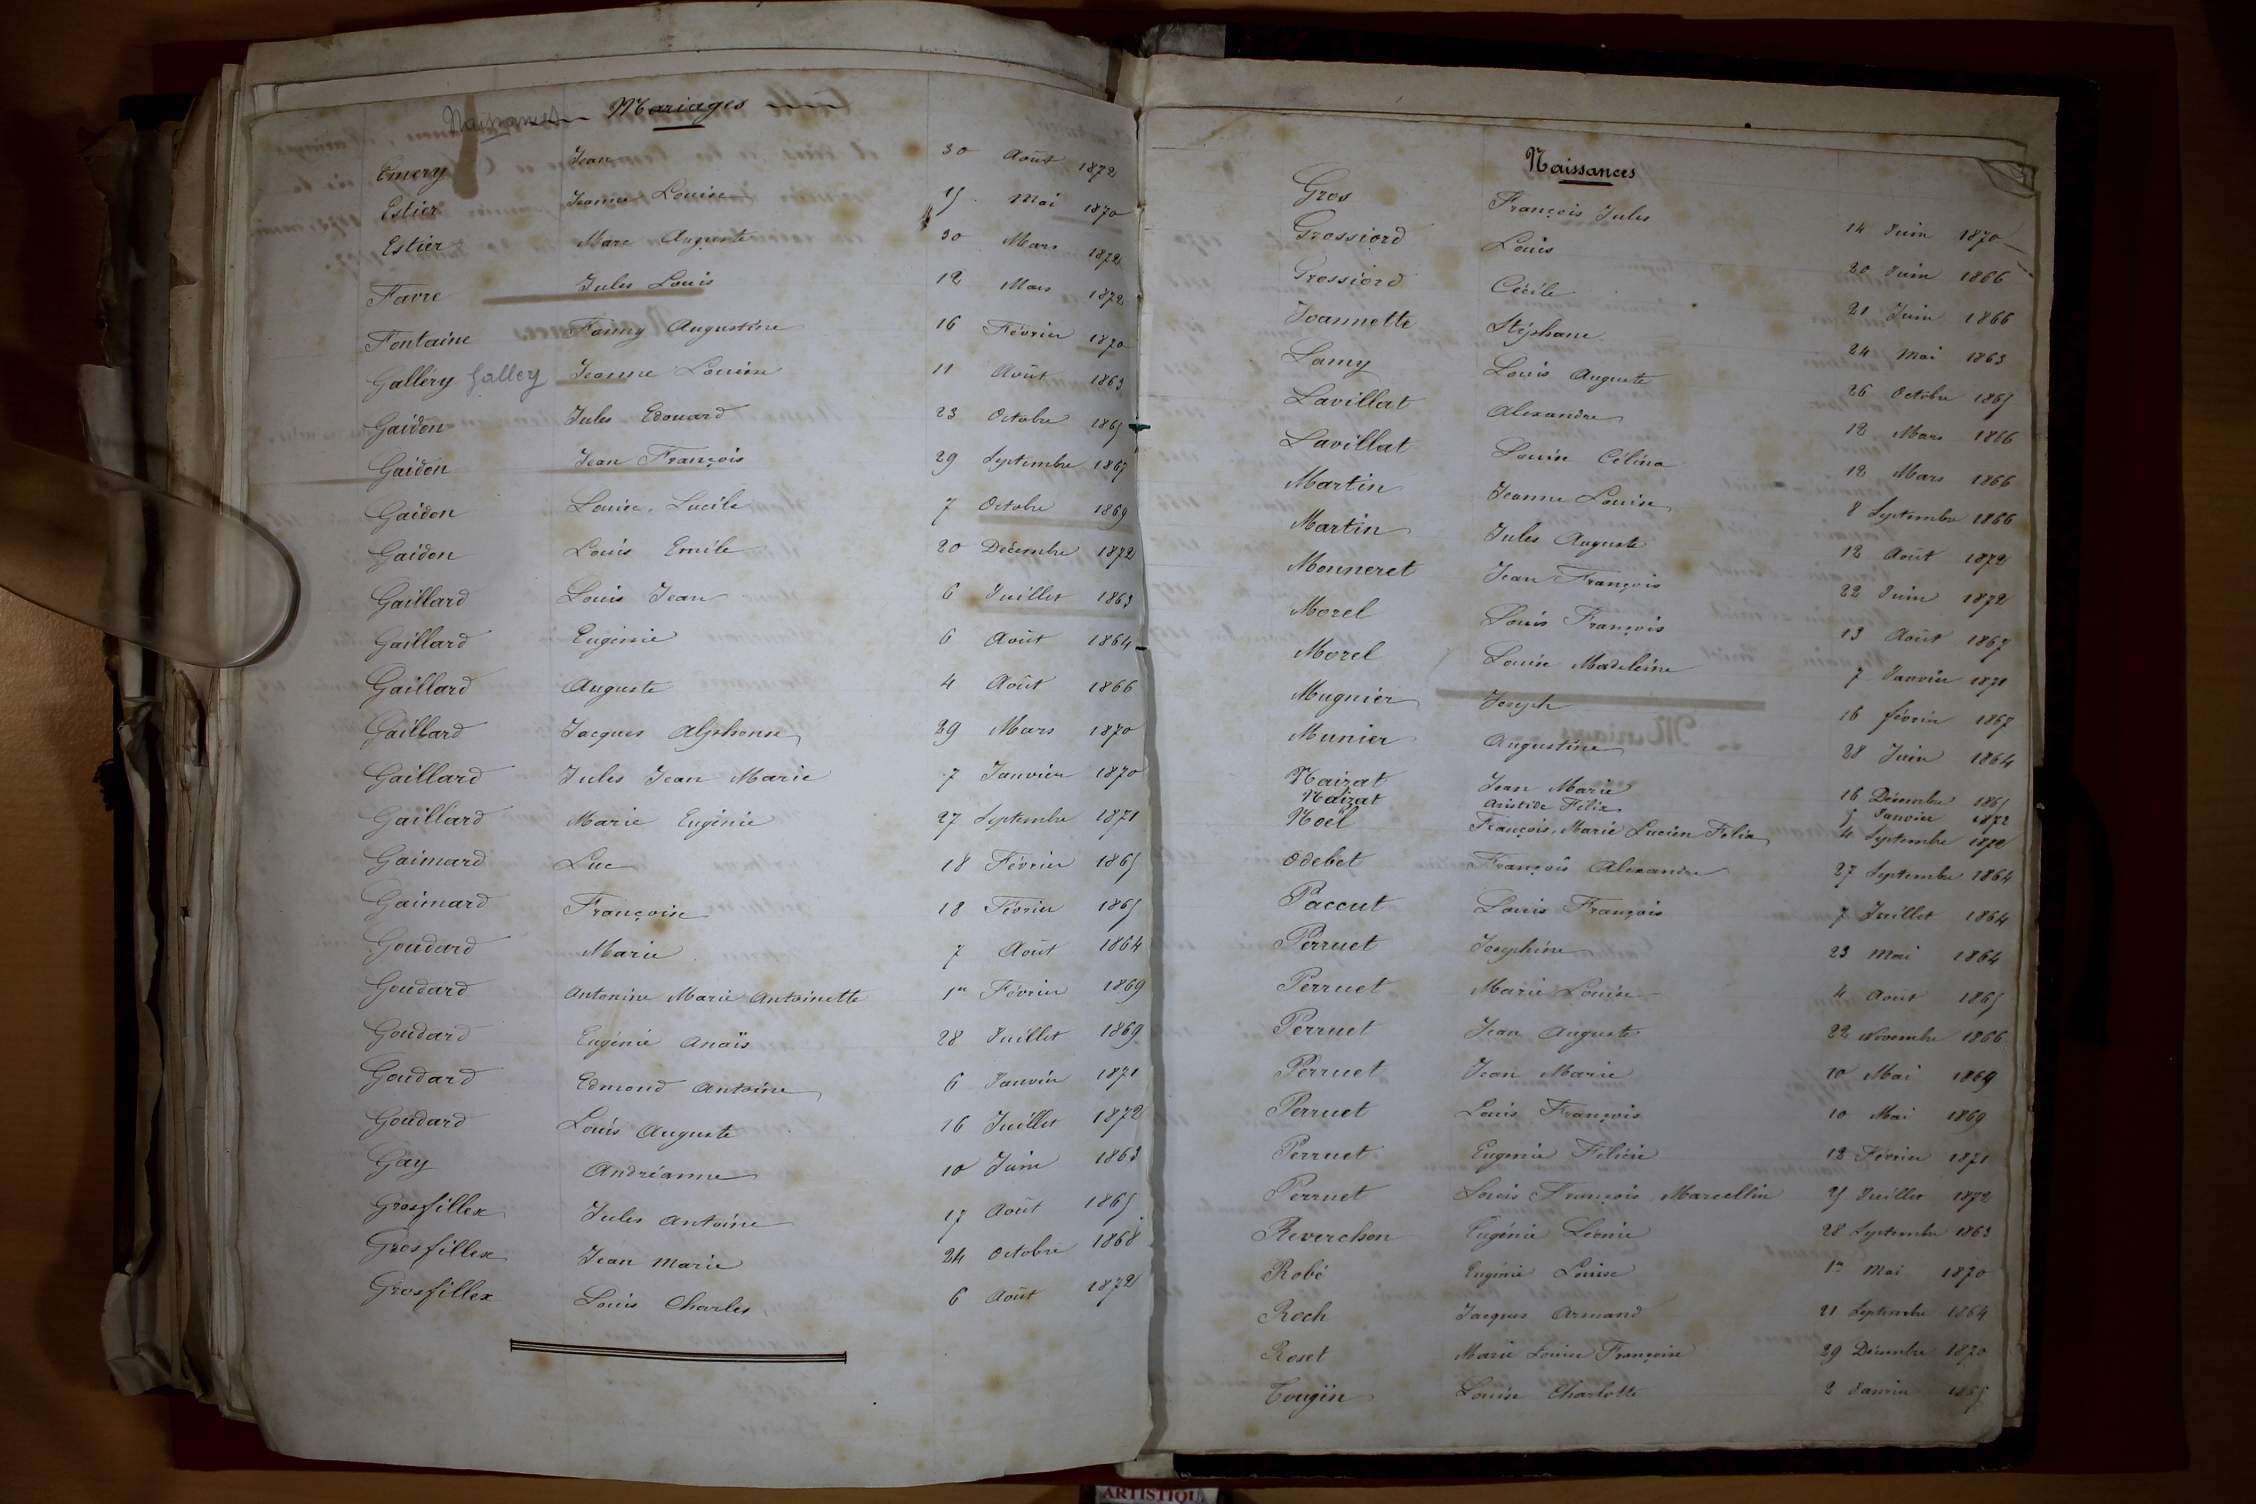 Naissances Mariages
Emery Jean 30 Août 1872
Estier Jeanne Louise 15 Mai 1870
Estier Marc Auguste 30 Mars 1872
Favre Jules Louis 12 Mars 1872
Fontaine Fanny Augustine 16 Février 1870
Galléry Galley Jeanne Louise 11 Août 1863
Gaidon Jules Edouard 23 Octobre 1865
Gaidon Jean François 29 Septembre 1867
Gaidon Louise Lucile 7 Octobre 1869
Gaidon Louis Emile 20 Décembre 1872
Gaillard Louis Jean 6 Juillet 1863
Gaillard Eugénie 6 Août 1864
Gaillard Auguste 4 Août 1866
Gaillard Jacques Alphonse 29 Mars 1870
Gaillard Jules Jean Marie 7 Janvier 1870
Gaillard Marie Eugénie 27 Septembre 1871
Gaimard Luc 18 Février 1865
Gaimard Françoise 18 Février 1865
Goudard Marie 7 Août 1864
Goudard Antonine Marie Antoinette 1er Février 1869
Goudard Eugénie Anaïs 28 Juillet 1869
Goudard Edmond Antoine 6 Janvier 1871
Goudard Louis Auguste 16 Juillet 1872
Gay Andréanne 10 Juin 1863
Grosfillex Jules Antoine 17 Août 1865
Grosfillex Jean Marie 24 Octobre 1868
Grosfillex Louis Charles 6 Août 1872
Naissances
Gros François Jules 14 Juin 1870
Grossiord Louis 20 Juin 1866
Grossiord Cécile 21 Juin 1866
Joannette Stéphane 24 Mai 1863
Lamy Louis Auguste 26 Octobre 1865
Lavillat Alexandre 12 Mars 1866
Lavillat Louise Célina 12 Mars 1866
Martin Jeanne Louise 8 Septembre 1866
Martin Jules Auguste 12 Août 1872
Monneret Jean François 22 Juin 1872
Morel Louis François 13 Août 1867
Morel Louise Madeleine 7 Janvier 1871
Mugnier Joseph 16 février 1867
Munier Augustine 28 Juin 1864
Naizat Jean Marie 16 Décembre 1865
Naizat Aristide Félix 5 Janvier 1872
Noël François Marie Lucien Felix 4 Septembre 1872
Odebet François Alexandre 27 Septembre 1864
Paccut Louis François 7 Juillet 1864
Perruet Joséphine 23 Mai 1864
Perruet Marie Louise 4 Août 1865
Perruet Jean Auguste 22 Novembre 1866
Perruet Jean Marie 10 Mai 1869
Perruet Louis François 10 Mai 1869
Perruet Eugénie Félicie 18 Février 1871
Perruet Louis François Marcellin 25 Juillet 1872
Reverchon Eugénie Léonie 28 Septembre 1863
Robé Eugénie Louise 1er Mai 1870
Roch Jacques Armand 21 Septembre 1864
Roset Marie Louise Françoise 29 Décembre 1870
Tougin Louise Charlotte 2 Janvier 1865
ARTISTIQU